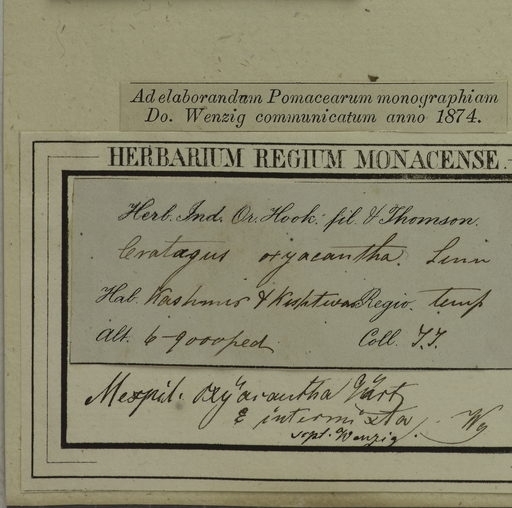 Ad elaborandum Pomacearum monographiam
Do. Wenzig communicatum anno 1874.
HERBARIUM REGIUM MONACENSE.
Herb. Ind. Or. Hook. fil. & Thomson.
Crataegus oxyacantha. Linn
Hab. Kashmir & Kishtwar Regio. temp
Alt. 6-9000 ped. Coll. T.T.
Mespil. oxyacantha Gärt
& intermixta
sept. Wenzig. Wg